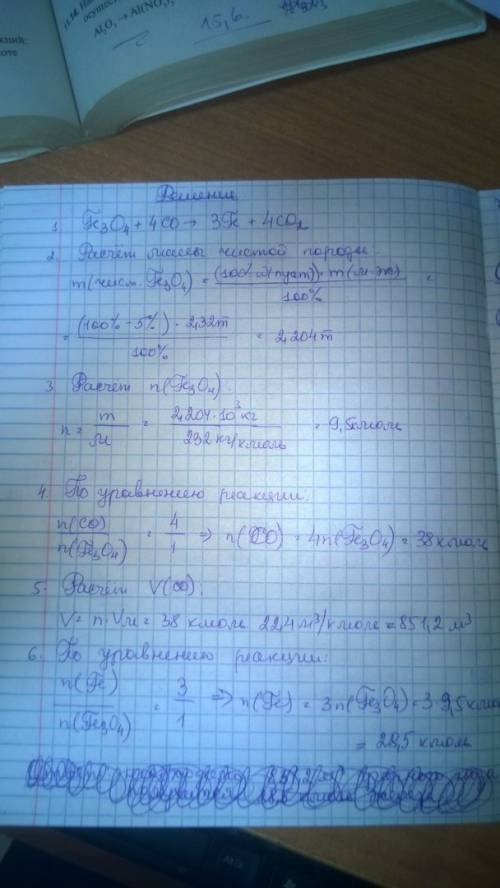 осущес
Al₂O₃ → Al(NO₃)
15,6.
кций:
оте
Решение
1. Fe₃O₄ + 4CO → 3Fe + 4CO₂
2. Расчёт массы чистой породы.
m(чист. Fe₃O₄) = (100%-ω(пуст))·m(ж-зн) / 100% =
= (100% - 5%) · 2,32т / 100% = 2,204т
3. Расчёт n(Fe₃O₄).
n = m/M = 2,204·10³кг / 232 кг/кмоль = 9,5кмоль
4. По уравнению реакции.
n(CO) / n(Fe₃O₄) = 4/1 => n(CO) = 4n(Fe₃O₄) = 38 кмоль
5. Расчёт V(CO).
V = n·Vм = 38 кмоль · 22,4 м³/кмоль = 851,2 м³
6. По уравнению реакции:
n(Fe) / n(Fe₃O₄) = 3/1 => n(Fe) = 3n(Fe₃O₄) = 3·9,5 кмо
= 28,5 кмоль